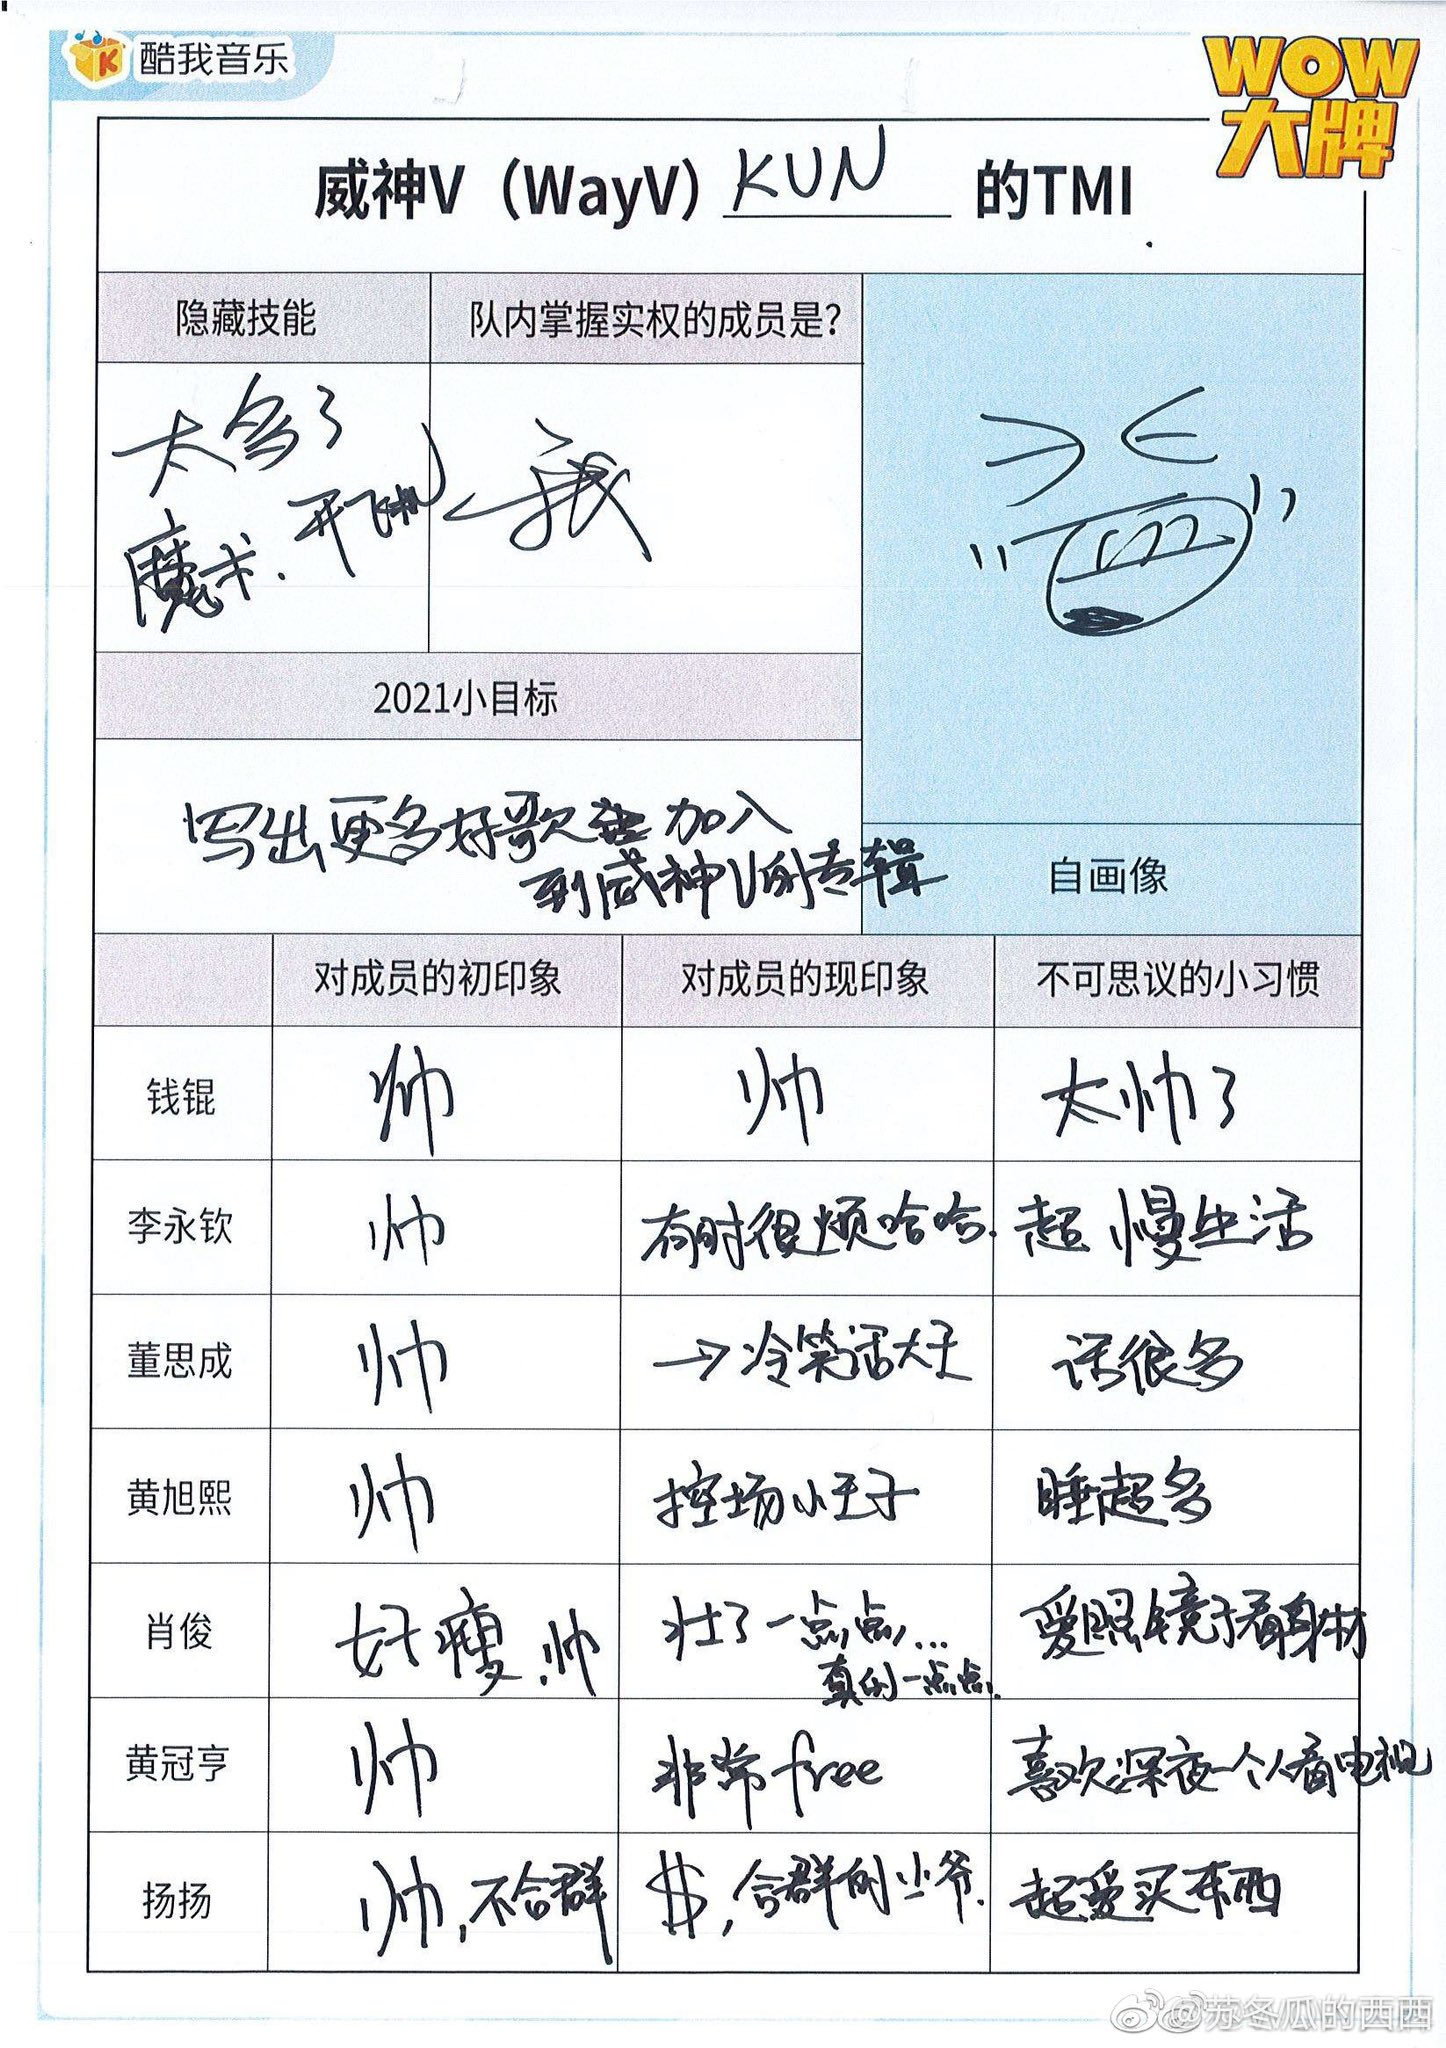 酷我音乐
WOW
大牌
威神V（WayV）KUN 的TMI
隐藏技能
队内掌握实权的成员是?
太多了
魔术、开飞机
我
2021小目标
写出更多好歌 加入
到威神V的专辑
自画像
对成员的初印象
对成员的现印象
不可思议的小习惯
钱锟
帅
帅
太帅了
李永钦
帅
有时很烦哈哈.
超 慢生活
董思成
帅
→冷笑话大王
话很多
黄旭熙
帅
控场小王子
睡超多
肖俊
好瘦、帅
壮了一点点,...
真的一点点.
爱照镜子看身材
黄冠亨
帅
非常free
喜欢深夜一个人看电视
扬扬
帅,不合群
$,合群的少爷.
超爱买东西
@苏冬瓜的西西